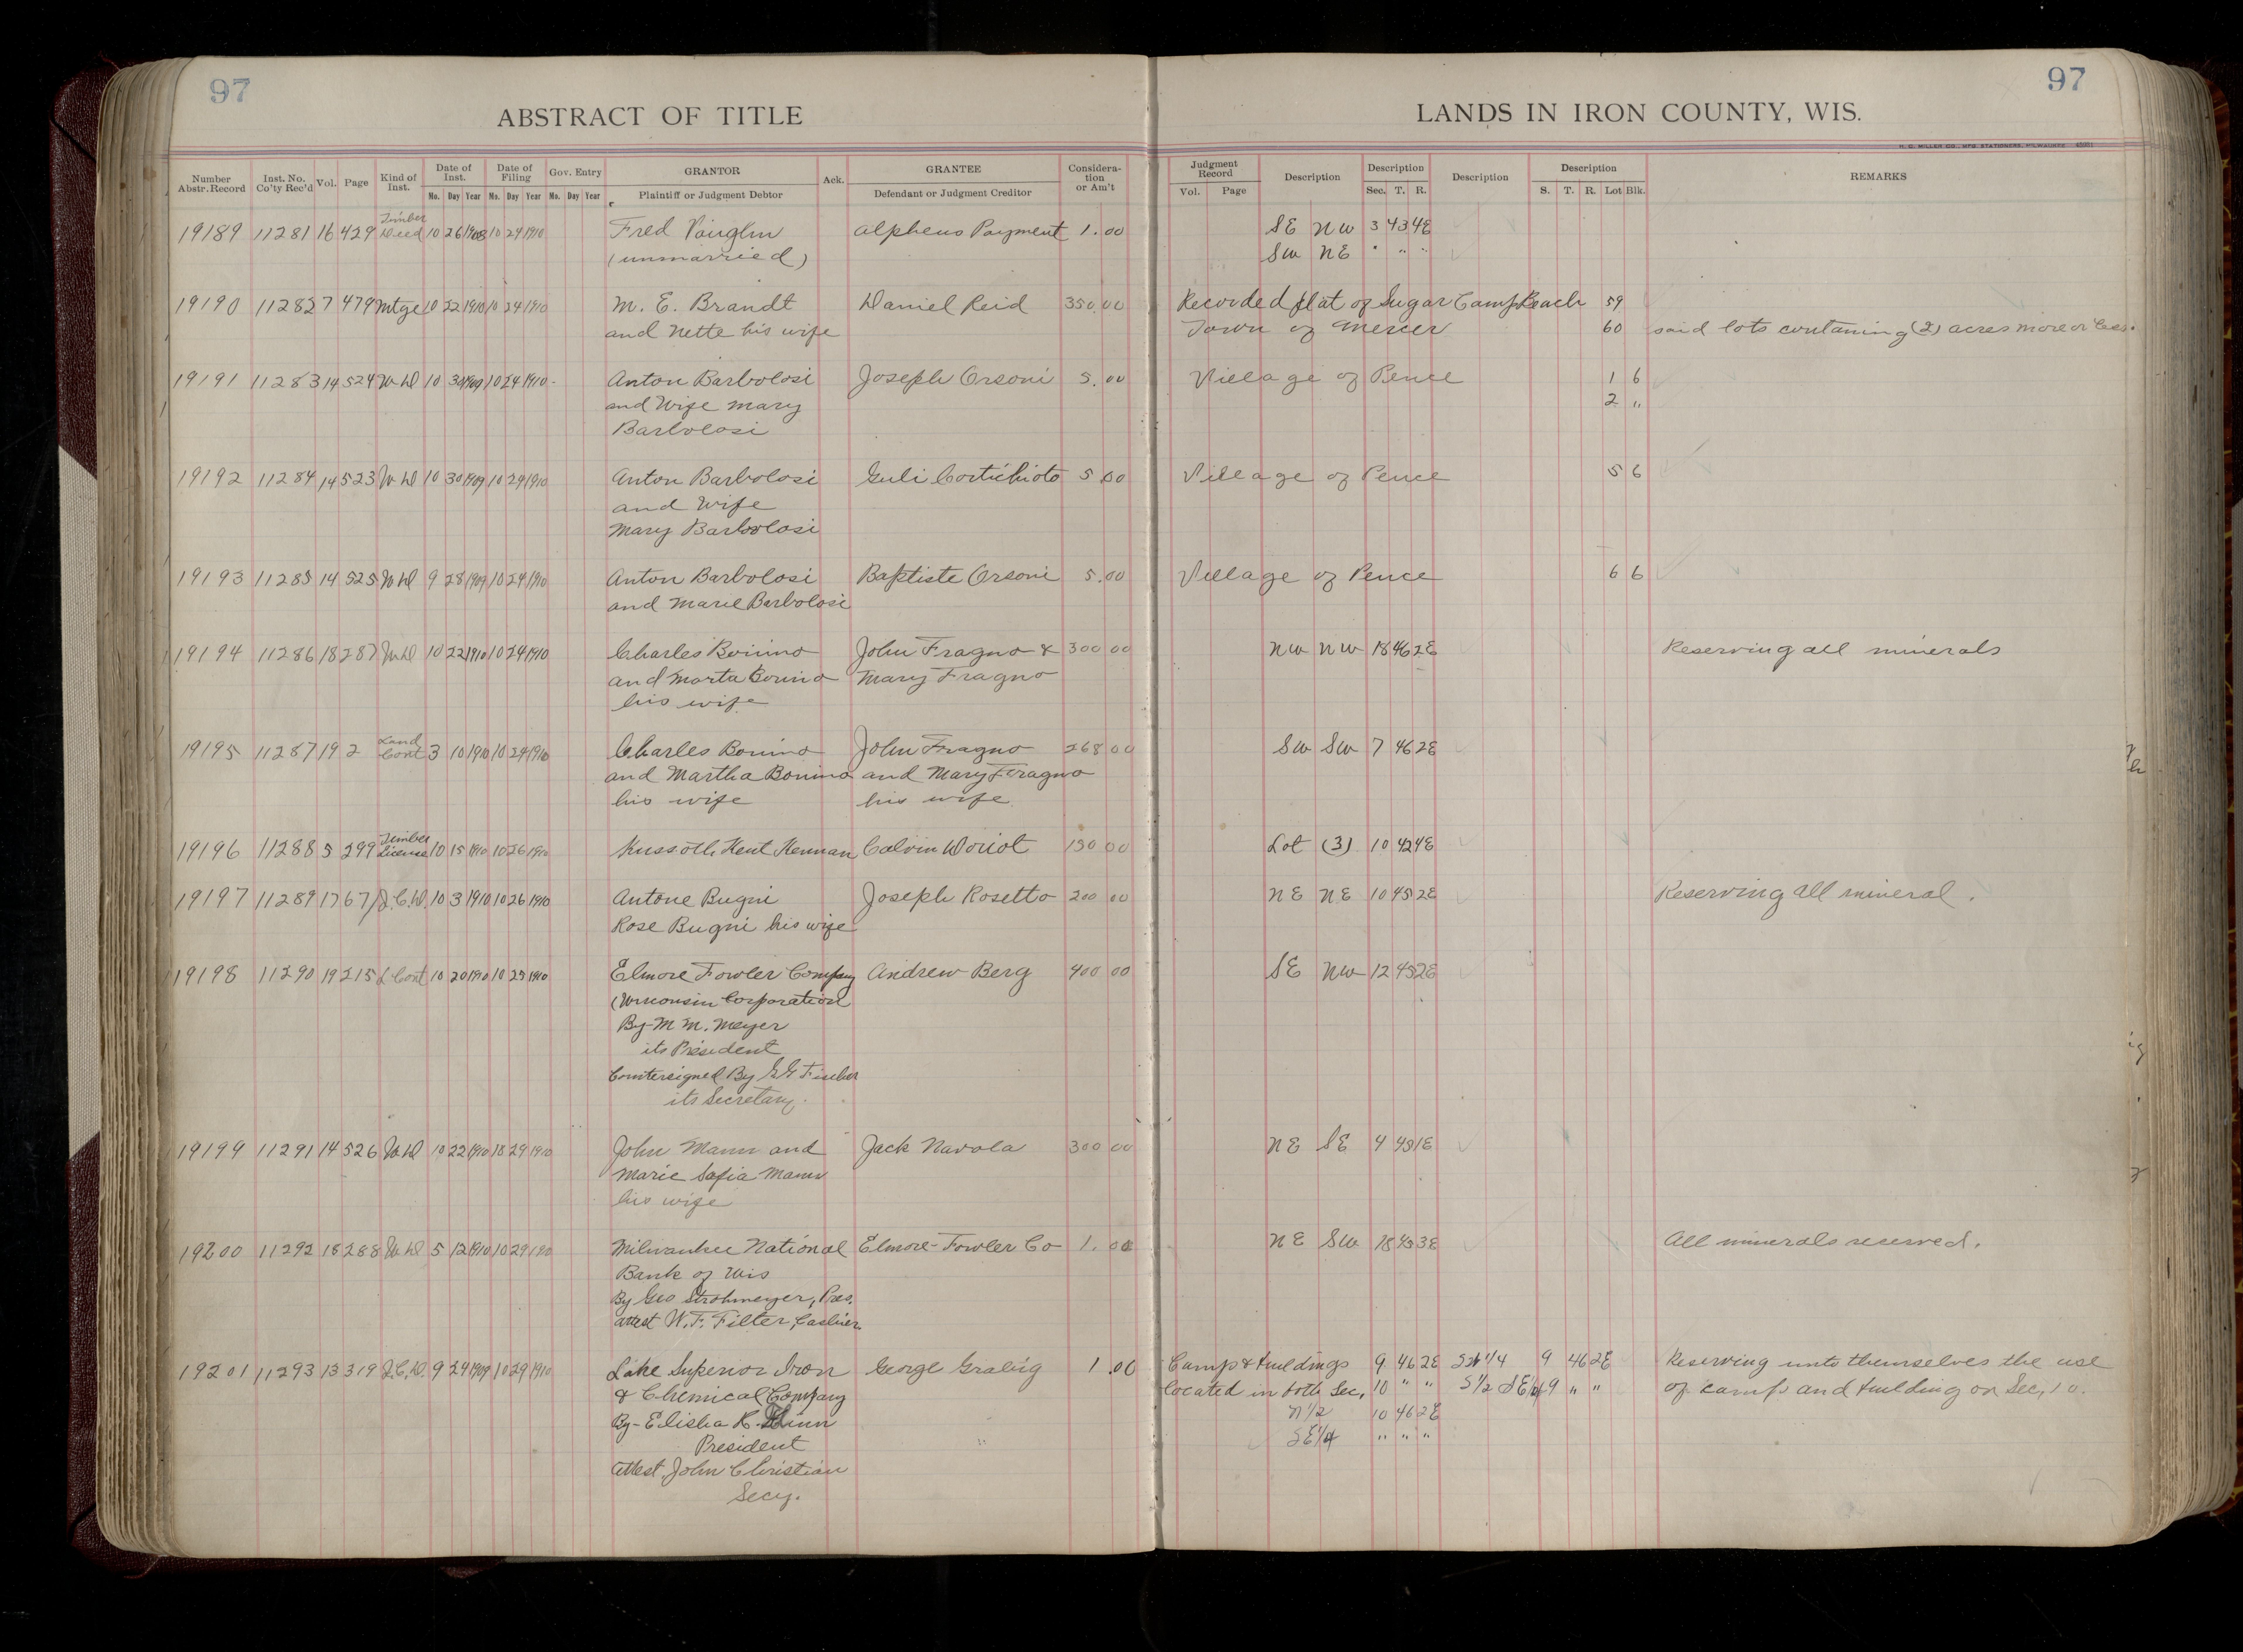 97
97
ABSTRACT OF TITLE
LANDS IN IRON COUNTY, WIS.
H. G. MILLER CO., MFG. STATIONERS, MILWAUKEE
Number Abstr. Record Inst. No. Co'ty Rec'd Vol. Page Kind of Inst. Date of Inst. Date of Filing Gov. Entry GRANTOR Ack. GRANTEE Considera-tion or Am't Judgment Record Description Description Description Description REMARKS
Mo. Day Year Mo. Day Year Mo. Day Year Plaintiff or Judgment Debtor Defendant or Judgment Creditor Vol. Page Sec. T. R. S. T. R. Lot Blk.
19189 11281 16 429 Timber Deed 10 26 1908 10 24 1910 Fred Vaughn Alpheus Payment 1.00 SE NW 3 43 4E
(unmarried) SW NE " " "
19190 11282 7 479 Mtge 10 22 1910 10 24 1910 M. E. Brandt Daniel Reid 350.00 Recorded plat of Sugar Camp Beach 59
and Nette his wife Town of Mercer 60 said lots containing (2) acres more or less.
19191 11283 14 524 W D 10 30 1909 10 24 1910 Anton Barbolosi Joseph Orsoni 5.00 Village of Pence 1 6
and Wife Mary 2 "
Barbolosi
19192 11284 14 523 W D 10 30 1909 10 24 1910 Anton Barbolosi Guli Cortichioto 5.00 Village of Pence 5 6
and Wife
Mary Barbolosi
19193 11285 14 525 W D 9 28 1909 10 24 1910 Anton Barbolosi Baptiste Orsoni 5.00 Village of Pence 6 6
and Marie Barbolosi
19194 11286 18 287 W D 10 22 1910 10 24 1910 Charles Bonino John Fragno & 300 00 NW NW 18 46 2E Reserving all minerals
and Marta Bonino Mary Fragno
his wife
19195 11287 19 2 Land Cont 3 10 1910 10 24 1910 Charles Bonino John Fragno 268 00 SW SW 7 46 2E
and Martha Bonino and Mary Fragno
his wife his wife
19196 11288 5 299 Timber License 10 15 1910 10 26 1910 Kussoth Kent Kennan Calvin Doriot 150 00 Lot (3) 10 42 4E
19197 11289 17 67 Q.C.D. 10 3 1910 10 26 1910 Antone Bugni Joseph Rosetto 200 00 NE NE 10 45 2E Reserving all mineral.
Rose Bugni his wife
19198 11290 19 215 L Cont 10 20 1910 10 25 1910 Elmore Fowler Company Andrew Berg 400 00 SE NW 12 45 2E
(Wisconsin Corporation
By M. M. Meyer
its President
Countersigned By
its Secretary.
19199 11291 14 526 W D 10 22 1910 18 29 1910 John Mann and Jack Navola 300 00 NE SE 4 45 1E
Marie Safia Mann
his wife
19200 11292 18 288 W D 5 12 1910 10 29 1910 Milwaukee National Elmore-Fowler Co 1.00 NE SW 18 45 3E All minerals reserved.
Bank of Wis
By Geo Strohmeyer, Pres.
attest W. F. Filter, Cashier
19201 11293 13 319 Q.C.D. 9 24 1909 10 29 1910 Lake Superior Iron George Grabig 1.00 Camp & buildings 9 46 2E SW 1/4 9 46 2E Reserving unto themselves the use
& Chemical Company located in both Sec, 10 " " S 1/2 SE 1/4 9 " " of camp and building on Sec, 10.
By - Elisha K. Flinn N 1/2 10 46 2E
President SE 1/4 " " "
attest John Christian
Secy.